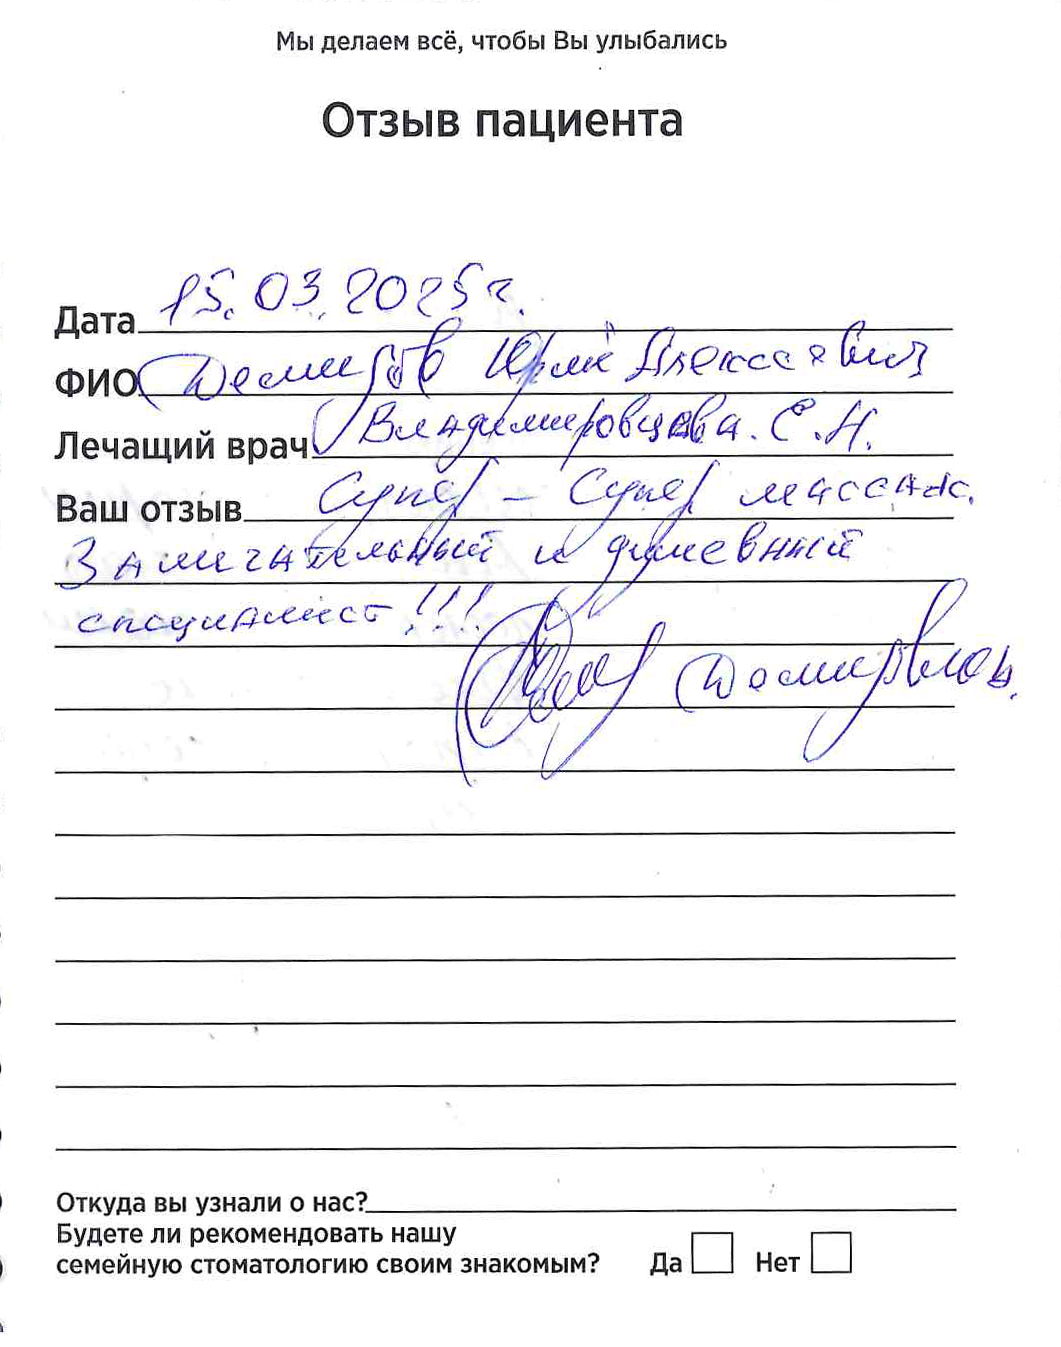 Мы делаем всё, чтобы Вы улыбались
Отзыв пациента
Дата 15.03.2025г.
ФИО Юрий Алексеевич
Лечащий врач Владимировцева. С.Н.
Ваш отзыв Супер - Супер массаж.
Замичательный и душевный
специалист!!!
Откуда вы узнали о нас?
Будете ли рекомендовать нашу
семейную стоматологию своим знакомым? Да Нет